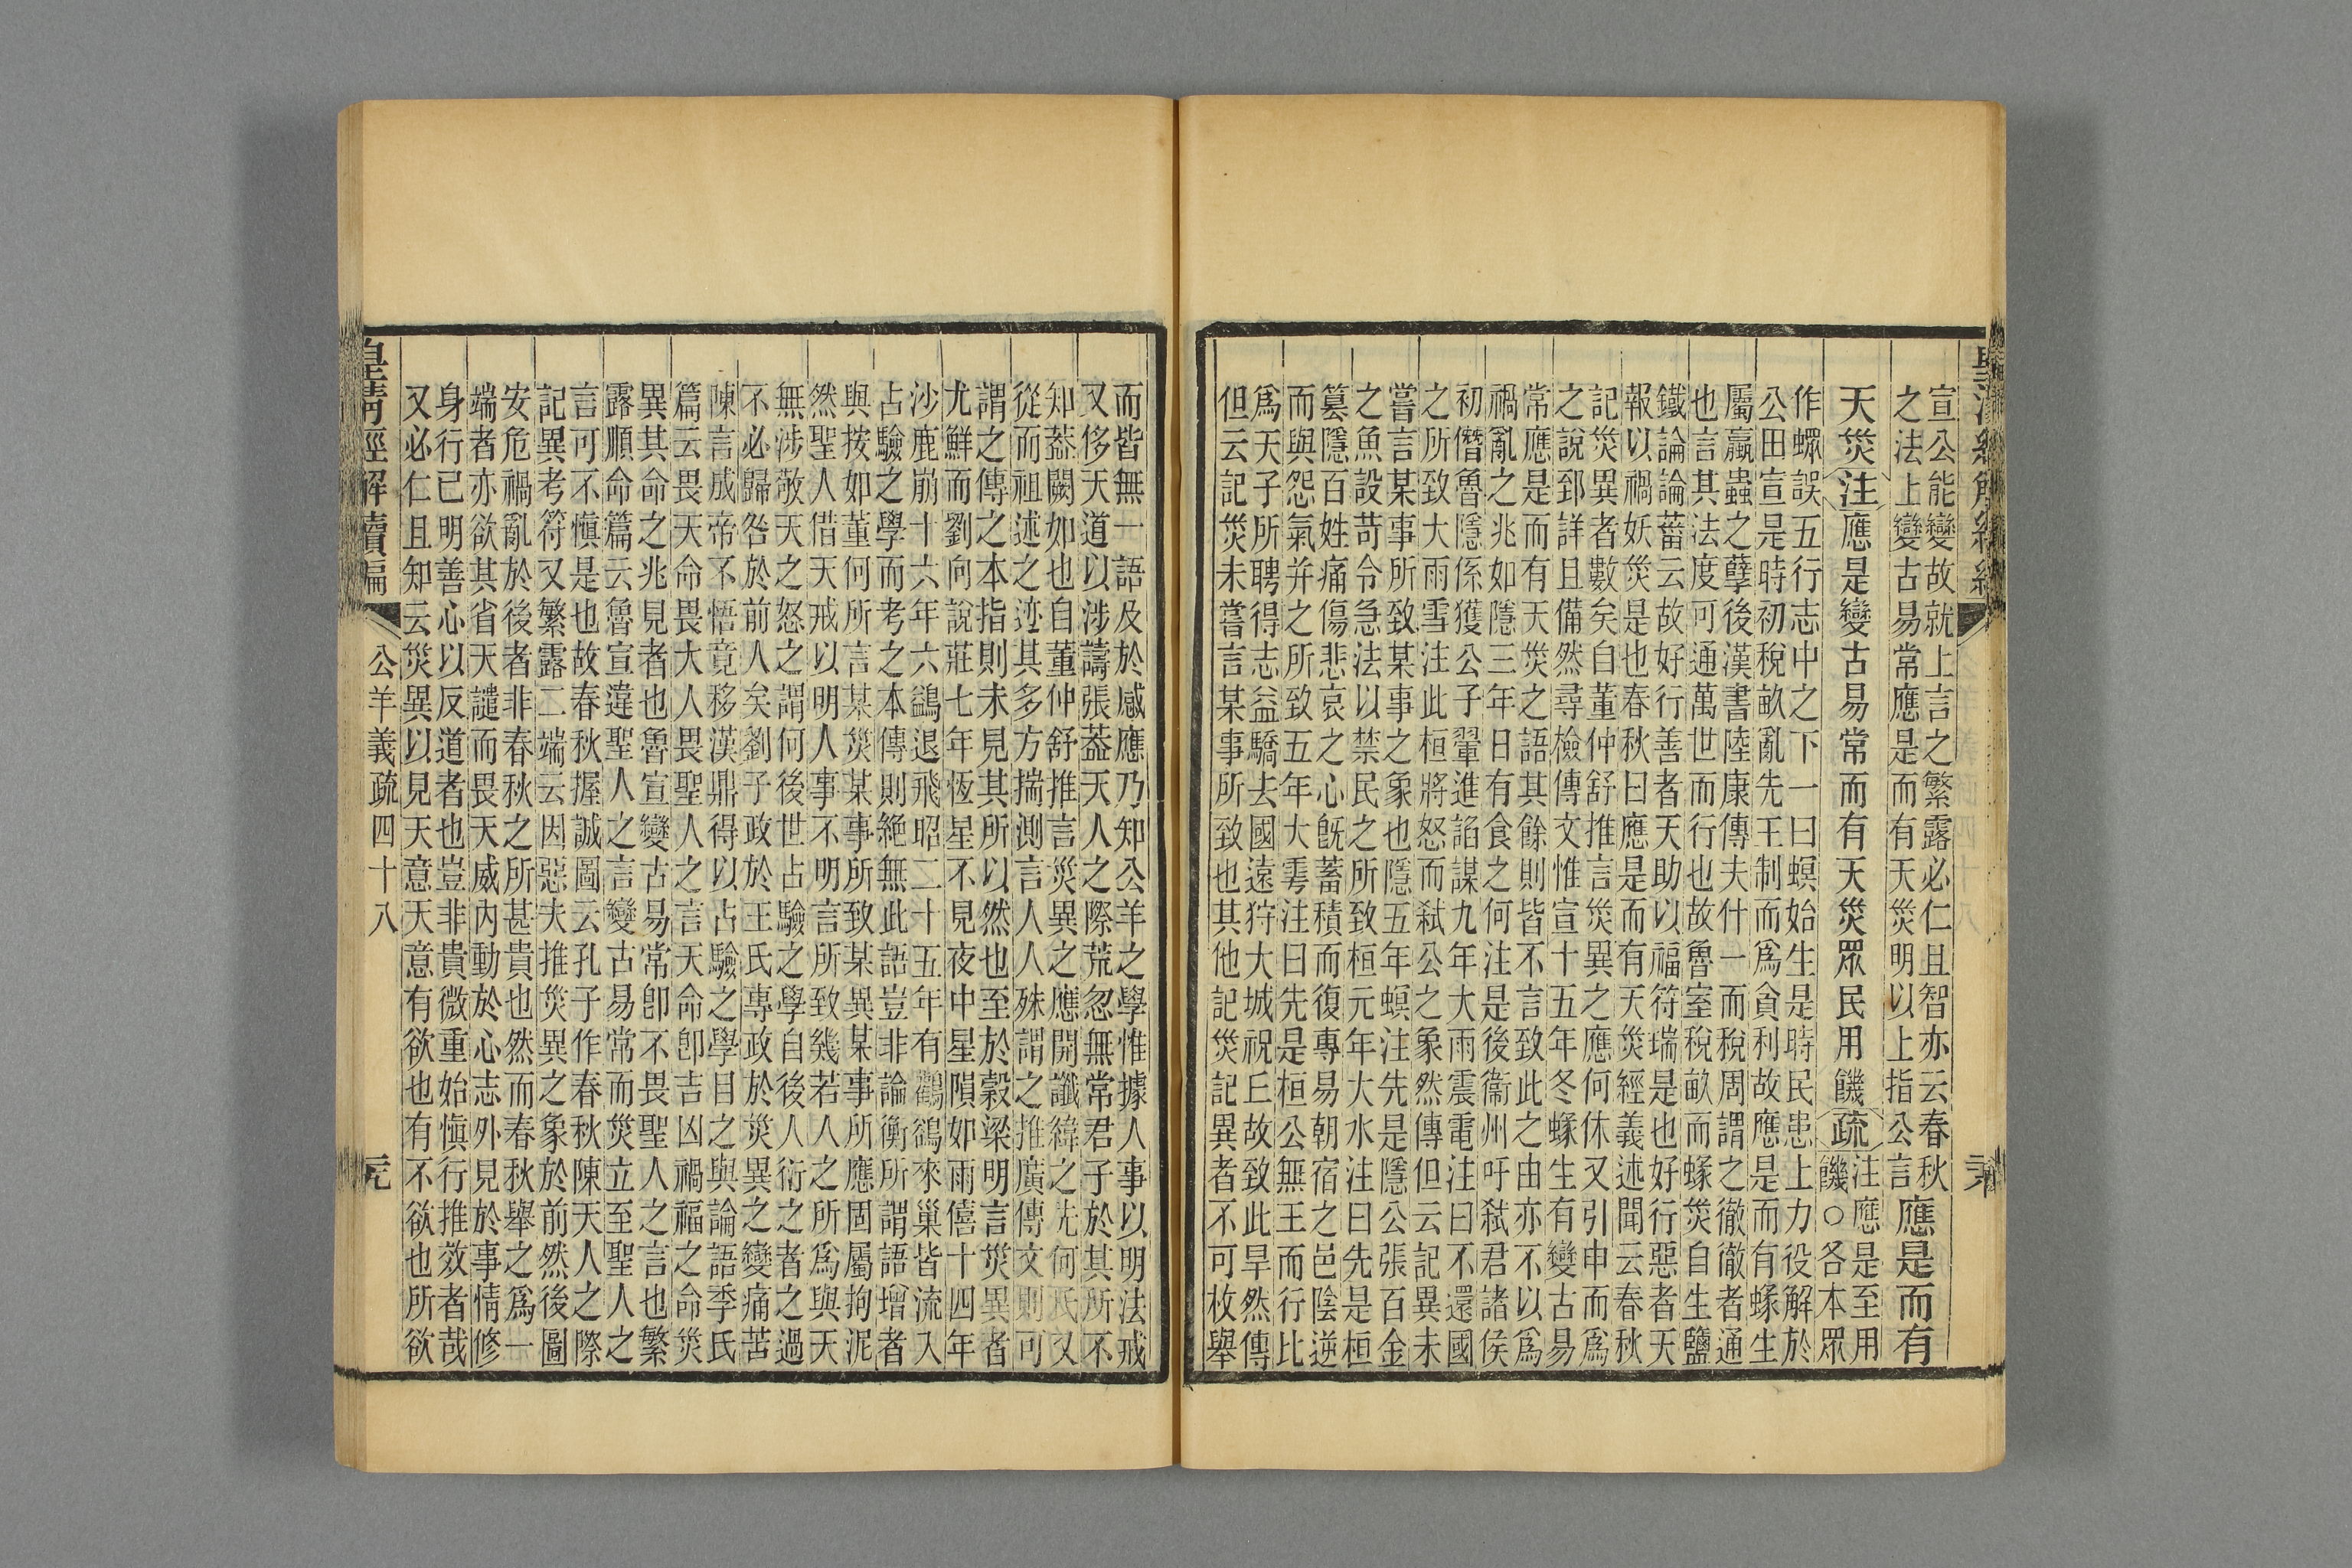 宣公能變故就上言之繁露必仁且智亦云春秋
之法上變古易常應是而有天災明以上指公言
應是而有
天災注應是變古易常而有天災眾民用饑疏
注應是至用
饑○各本眾
作蠓誤五行志中之下一曰螟始生是時民患上力役解於
公田宣是時初稅畝亂先王制而爲貪利故應是而有蝝生
屬蠃蟲之孽後漢書陸康傳夫什一而稅周謂之徹徹者通
也言其法度可通萬世而行也故魯室稅畝而蝝災自生鹽
鐵論論蓄云故好行善者天助以福符瑞是也好行惡者天
報以禍妖災是也春秋曰應是而有天災經義述聞云春秋
記災異者數矣自董仲舒推言災異之應何休又引申而爲
之說郅詳且備然尋檢傳文惟宣十五年冬蝝生有變古易
常應是而有天災之語其餘則皆不言致此之由亦不以爲
禍亂之兆如隱三年日有食之何注是後衞州吁弑君諸侯
初僭魯隱係獲公子翬進諂謀九年大雨震電注曰不還國
之所致大雨雪注此桓將怒而弑公之象然傳但云記異未
嘗言某事所致某事之象也隱五年螟注先是隱公張百金
之魚設苛令急法以禁民之所致桓元年大水注曰先是桓
篡隱百姓痛傷悲哀之心旣蓄積而復專易朝宿之邑陰逆
而與怨氣并之所致五年大雩注曰先是桓公無王而行比
爲天子所聘得志益驕去國遠狩大城祝丘故致此旱然傳
但云記災未嘗言某事所致也其他記災記異者不可枚舉
而皆無一語及於感應乃知公羊之學惟據人事以明法戒
又侈天道以涉譸張葢天人之際荒忽無常君子於其所不
知葢闕如也自董仲舒推言災異之應開讖緯之先何氏又
從而祖述之迹其多方揣測言人人殊謂之推廣傳文則可
謂之傳之本指則未見其所以然也至於穀梁明言災異者
尤鮮而劉向說莊七年恆星不見夜中星隕如雨僖十四年
沙鹿崩十六年六鷁退飛昭二十五年有鸛鵒來巢皆流入
占驗之學而考之本傳則絕無此語豈非論衡所謂語增者
與按如董何所言某災某事所致某異某事所應固屬拘泥
然聖人借天戒以明人事不明言所致幾若人之所爲與天
無涉敬天之怒之謂何後世占驗之學自後人衍之者之過
不必歸咎於前人矣劉子政於王氏專政於災異之變痛苦
陳言成帝不悟竟移漢鼎得以占驗之學目之與論語季氏
篇云畏天命畏大人畏聖人之言天命卽吉凶禍福之命災
異其命之兆見者也魯宣變古易常卽不畏聖人之言也繁
露順命篇云魯宣違聖人之言變古易常而災立至聖人之
言可不慎是也故春秋握誠圖云孔子作春秋陳天人之際
記異考符又繁露二端云因惡夫推災異之象於前然後圖
安危禍亂於後者非春秋之所甚貴也然而春秋舉之爲一
端者亦欲其省天譴而畏天威內動於心志外見於事情修
身行已明善心以反道者也豈非貴微重始愼行推效者哉
又必仁且知云災異以見天意天意有欲也有不欲也所欲
皇清經解續編
公羊義疏四十八